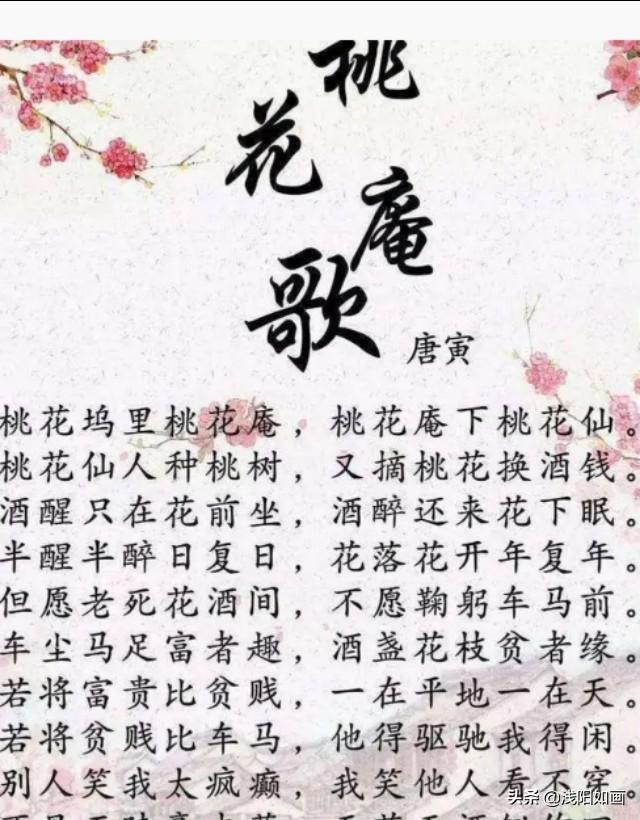 桃花庵歌
唐寅
桃花坞里桃花庵，桃花庵下桃花仙。
桃花仙人种桃树，又摘桃花换酒钱。
酒醒只在花前坐，酒醉还来花下眠。
半醒半醉日复日，花落花开年复年。
但愿老死花酒间，不愿鞠躬车马前。
车尘马足富者趣，酒盏花枝贫者缘。
若将富贵比贫贱，一在平地一在天。
若将贫贱比车马，他得驱驰我得闲。
别人笑我太疯癫，我笑他人看不穿。
头条 @浅阳如画